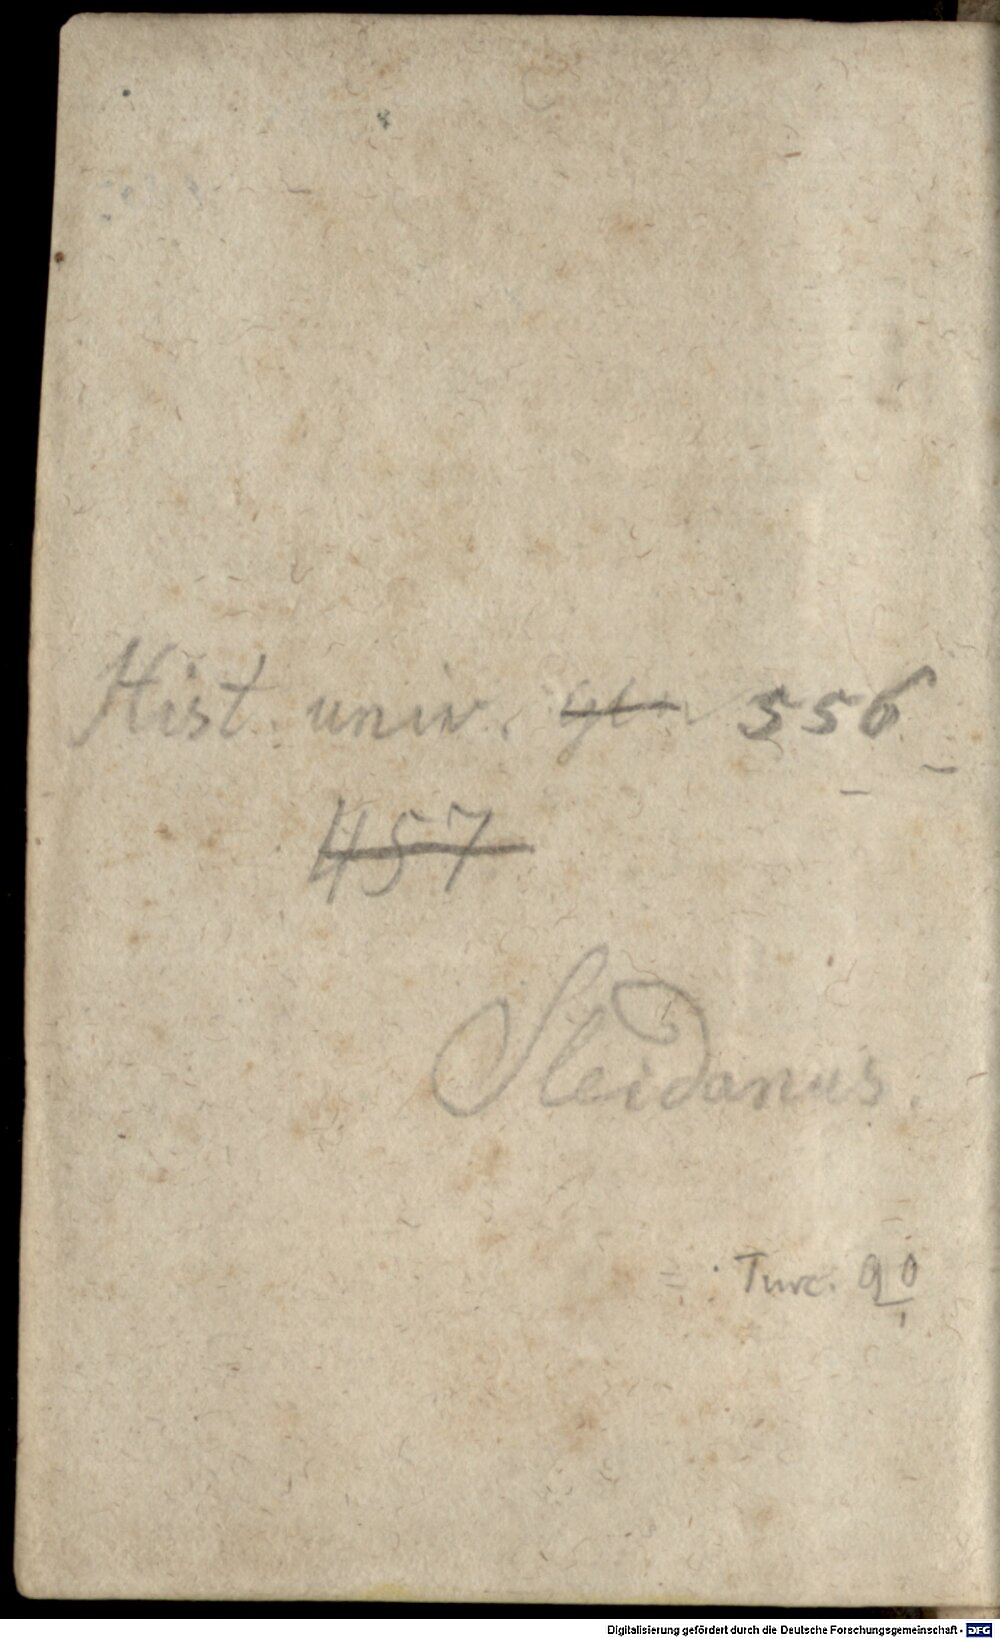 Hist. univ. 556
457
Sleidanus.
= Turc. 90
1
Digitalisierung gefördert durch die Deutsche Forschungsgemeinschaft - DFG